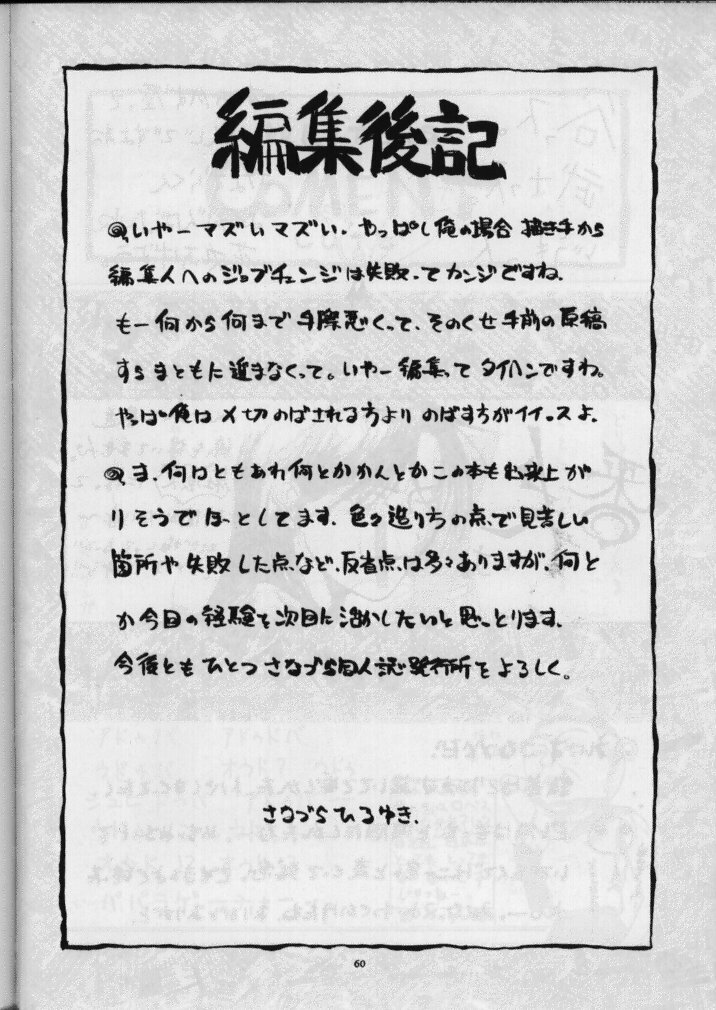 編集後記
@いやーマズいマズい.やっぱし俺の場合 描き手から
編集人へのジョブチェンジは失敗.てカンジですね.
も一何から何まで手際悪くって、そのくせ手前の原稿
すらまともに進まなくって。いやー編集ってタイヘンですね。
やっぱ俺は〆切のばされる方よりのばす方がイイッスよ.
@ま、何はともあれ何とかかんとかこの本も出来上が
りそうでほっとしてます、色々造りちの点で見苦しい
箇所や失敗した点など、反省点は多々ありますが、何と
か今回の経験を次回に活かしたいと思っとります、
今後ともひとつさなづら同人誌発行所をよろしく。
さなづらひろゆき.
60